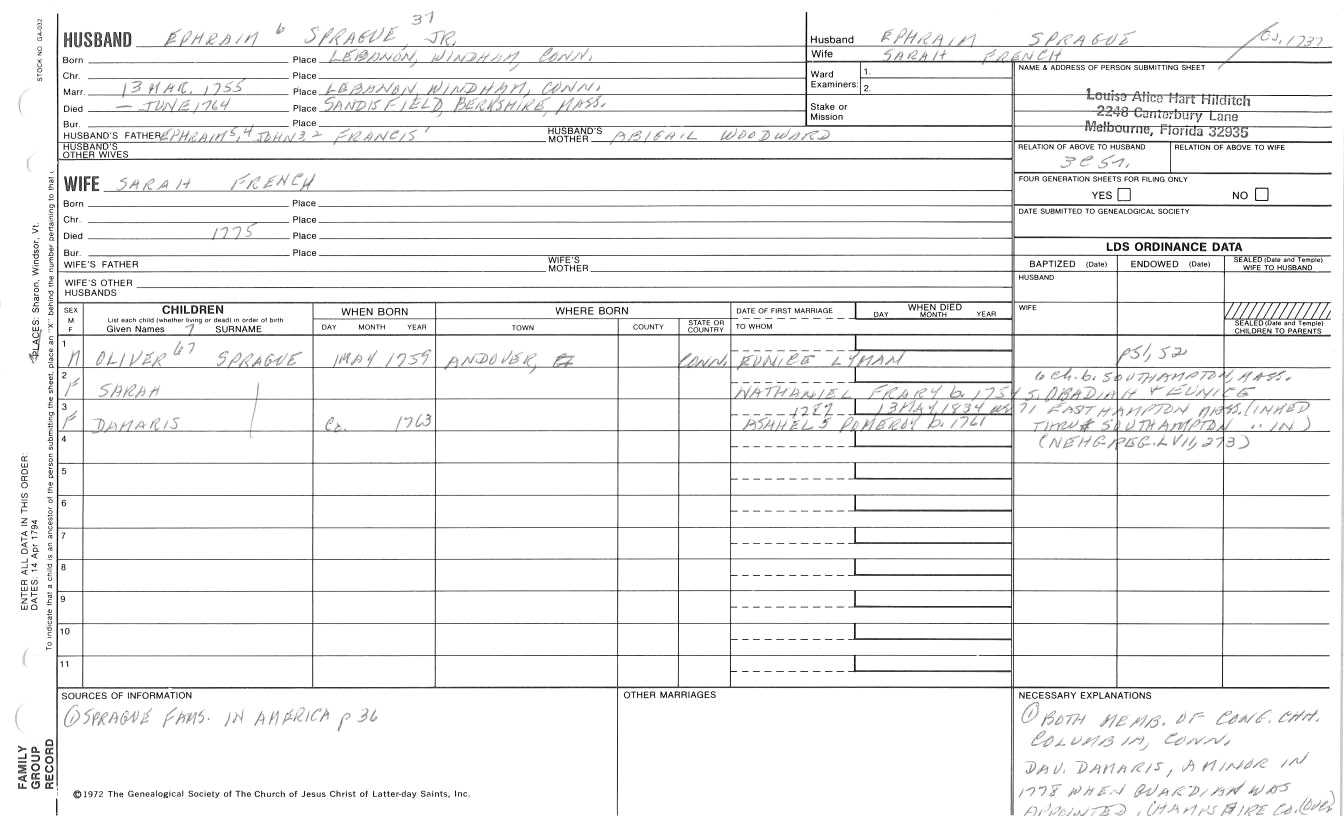 STOCK NO. GA-032
HUSBAND EPHRAIM 6 SPRAGUE 37 JR.
Born Place LEBANON, WINDHAM, CONN.
Chr. Place
Marr. 13 MAR. 1755 Place LEBANON, WINDHAM, CONN.
Died — JUNE 1764 Place SANDISFIELD, BERKSHIRE, MASS.
Bur. Place
HUSBAND'S FATHER EPHRAIM 5,4 JOHN 3,2 FRANCIS 1 HUSBAND'S MOTHER ABIGAIL WOODWARD
HUSBAND'S OTHER WIVES
Husband EPHRAIM SPRAGUE Ca. 1737
Wife SARAH FRENCH
Ward Examiners: 1.
2.
Stake or Mission
NAME & ADDRESS OF PERSON SUBMITTING SHEET
Louise Alice Hart Hilditch
2248 Canterbury Lane
Melbourne, Florida 32935
RELATION OF ABOVE TO HUSBAND RELATION OF ABOVE TO WIFE
3C 5r.
FOUR GENERATION SHEETS FOR FILING ONLY
YES NO
DATE SUBMITTED TO GENEALOGICAL SOCIETY
WIFE SARAH FRENCH
Born Place
Chr. Place
Died 1775 Place
Bur. Place
WIFE'S FATHER WIFE'S MOTHER
WIFE'S OTHER HUSBANDS
LDS ORDINANCE DATA
BAPTIZED (Date) ENDOWED (Date) SEALED (Date and Temple) WIFE TO HUSBAND
HUSBAND
WIFE
SEALED (Date and Temple) CHILDREN TO PARENTS
SEX M F CHILDREN WHEN BORN WHERE BORN DATE OF FIRST MARRIAGE WHEN DIED
List each child (whether living or dead) in order of birth
Given Names SURNAME DAY MONTH YEAR TOWN COUNTY STATE OR COUNTRY TO WHOM DAY MONTH YEAR
1 M OLIVER 67 SPRAGUE 1 MAY 1759 ANDOVER, CONN. EUNICE LYMAN p51, 52
6 ch. b. SOUTHAMPTON, MASS.
2 F SARAH NATHANIEL FRARY b. 1754 S. OBADIAH & EUNICE
3 F DAMARIS Ca. 1763 1787 13 MAY 1834 71 EASTHAMPTON MASS. (INHED
ASAHEL 5 POMEROY b. 1761 THRU SOUTHAMPTON " IN)
4 (NEHG REG. LVII, 273)
5
6
7
8
9
10
11
SOURCES OF INFORMATION
① SPRAGUE FAMS. IN AMERICA p 36
OTHER MARRIAGES
NECESSARY EXPLANATIONS
① BOTH MEMB. OF CONG. CHH.
COLUMBIA, CONN.
DAU. DAMARIS, A MINOR IN
1778 WHEN GUARDIAN WAS
APPOINTED, (HAMPSHIRE CO. (OVER)
©1972 The Genealogical Society of The Church of Jesus Christ of Latter-day Saints, Inc.
PLACES: Sharon, Windsor, Vt.
ENTER ALL DATA IN THIS ORDER:
DATES: 14 Apr 1794
To indicate that a child is an ancestor of the person submitting the sheet, place an "X" behind the number pertaining to that
FAMILY GROUP RECORD